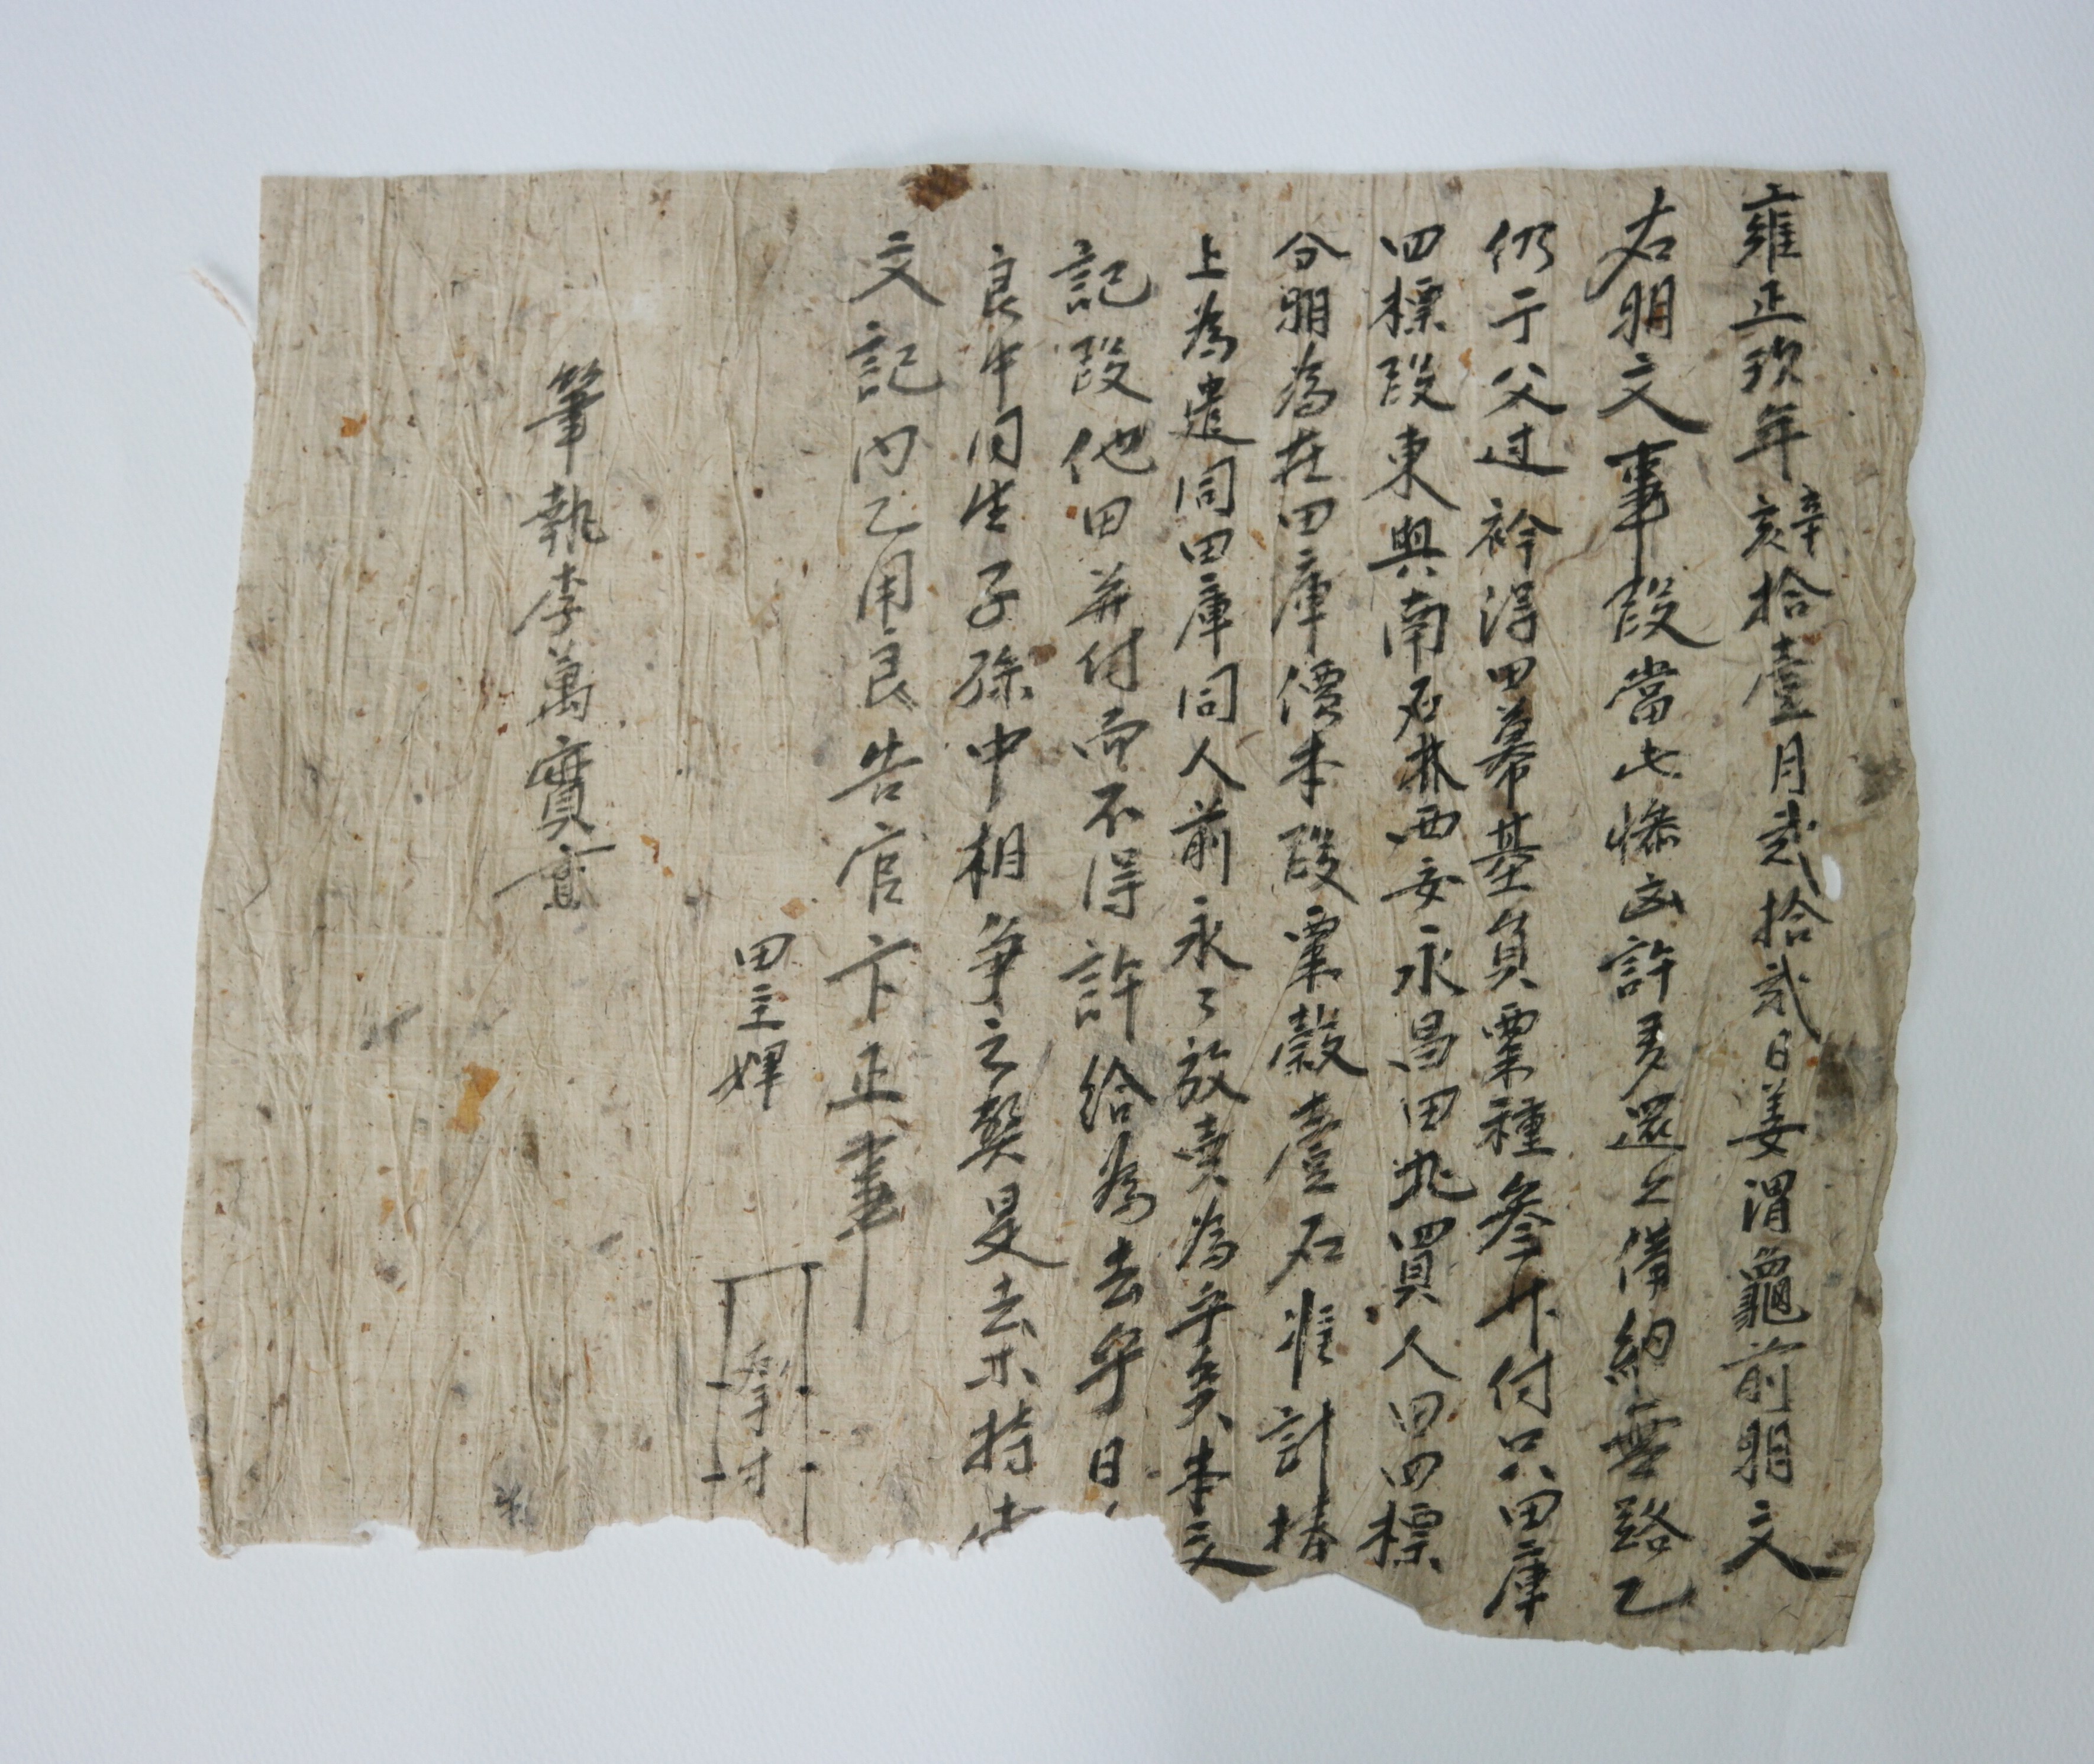 雍正玖年辛亥拾壹月貳拾貳日姜渭龜前明文
右明文事段當此慘凶許多還上備納無路乙
仍于父过衿得田幕基負粟種參斗付只田庫
四標段東與南石林西安永昌田北買人田四標
分明為在田庫價本段粟穀壹石准計捧
上為遣同田庫同人前永々放賣為乎矣本文
記段他田并付而不得許給為去乎日
良中同生子孫中相爭之弊是去木持
文記內乙用良告官卞正事
田主婢
掌寸
筆執李萬實